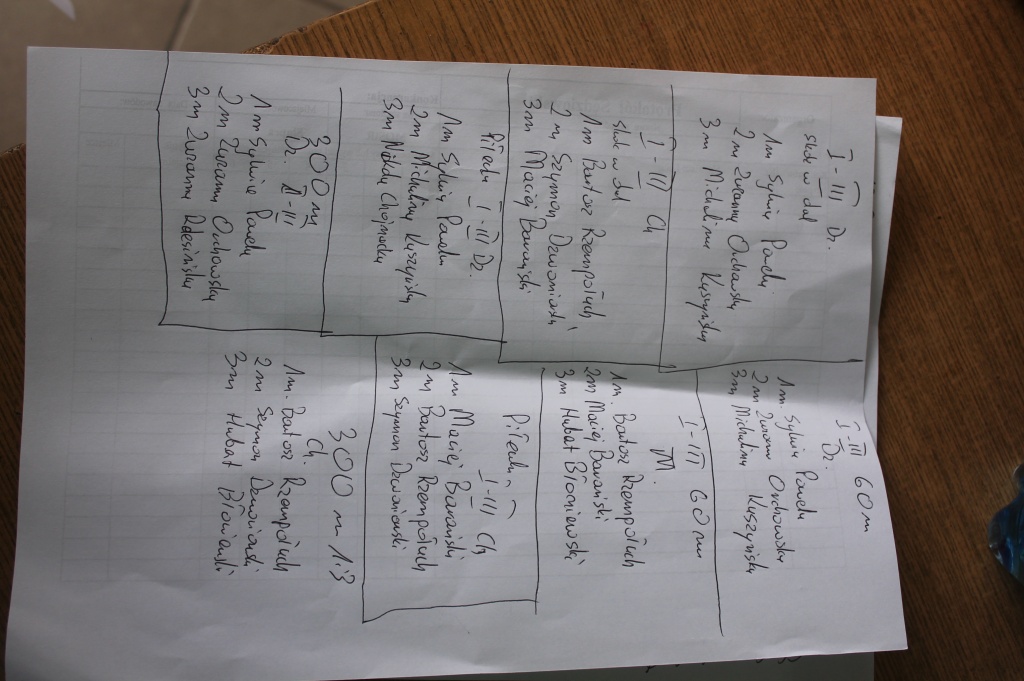 I-III Dz.
skok w dal
1m Sylwia Pawela
2m Zuzanna Orchowska
3m Michalina Kuszyńska
I-III Ch
skok w dal
1m Bartosz Rzempołuch
2m Szymon Dzwonioski
3m Maciej Barański
Piłeczka I-III Dz.
1m Sylwia Pawela
2m Michalina Kuszyńska
3m Nikola Chojnacka
300 m
Dz. I-III
1m Sylwia Pawela
2m Zuzanna Orchowska
3m Zuzanna
60 m
I-III
Dz.
1m. Sylwia Pawela
2m Zuzanna Orchowska
3m Michalina Kuszyńska
I-III 60 m
M.
1m. Bartosz Rzempołuch
2m Maciej Barański
3m Hubert Błoniewski
Piłeczka
I-III Ch
1m Maciej Barański
2m Bartosz Rzempołuch
3m Szymon Dzwonioski
300 m 1-3
Ch.
1m. Bartosz Rzempołuch
2m Szymon Dzwonioski
3m Hubert Błoniewski